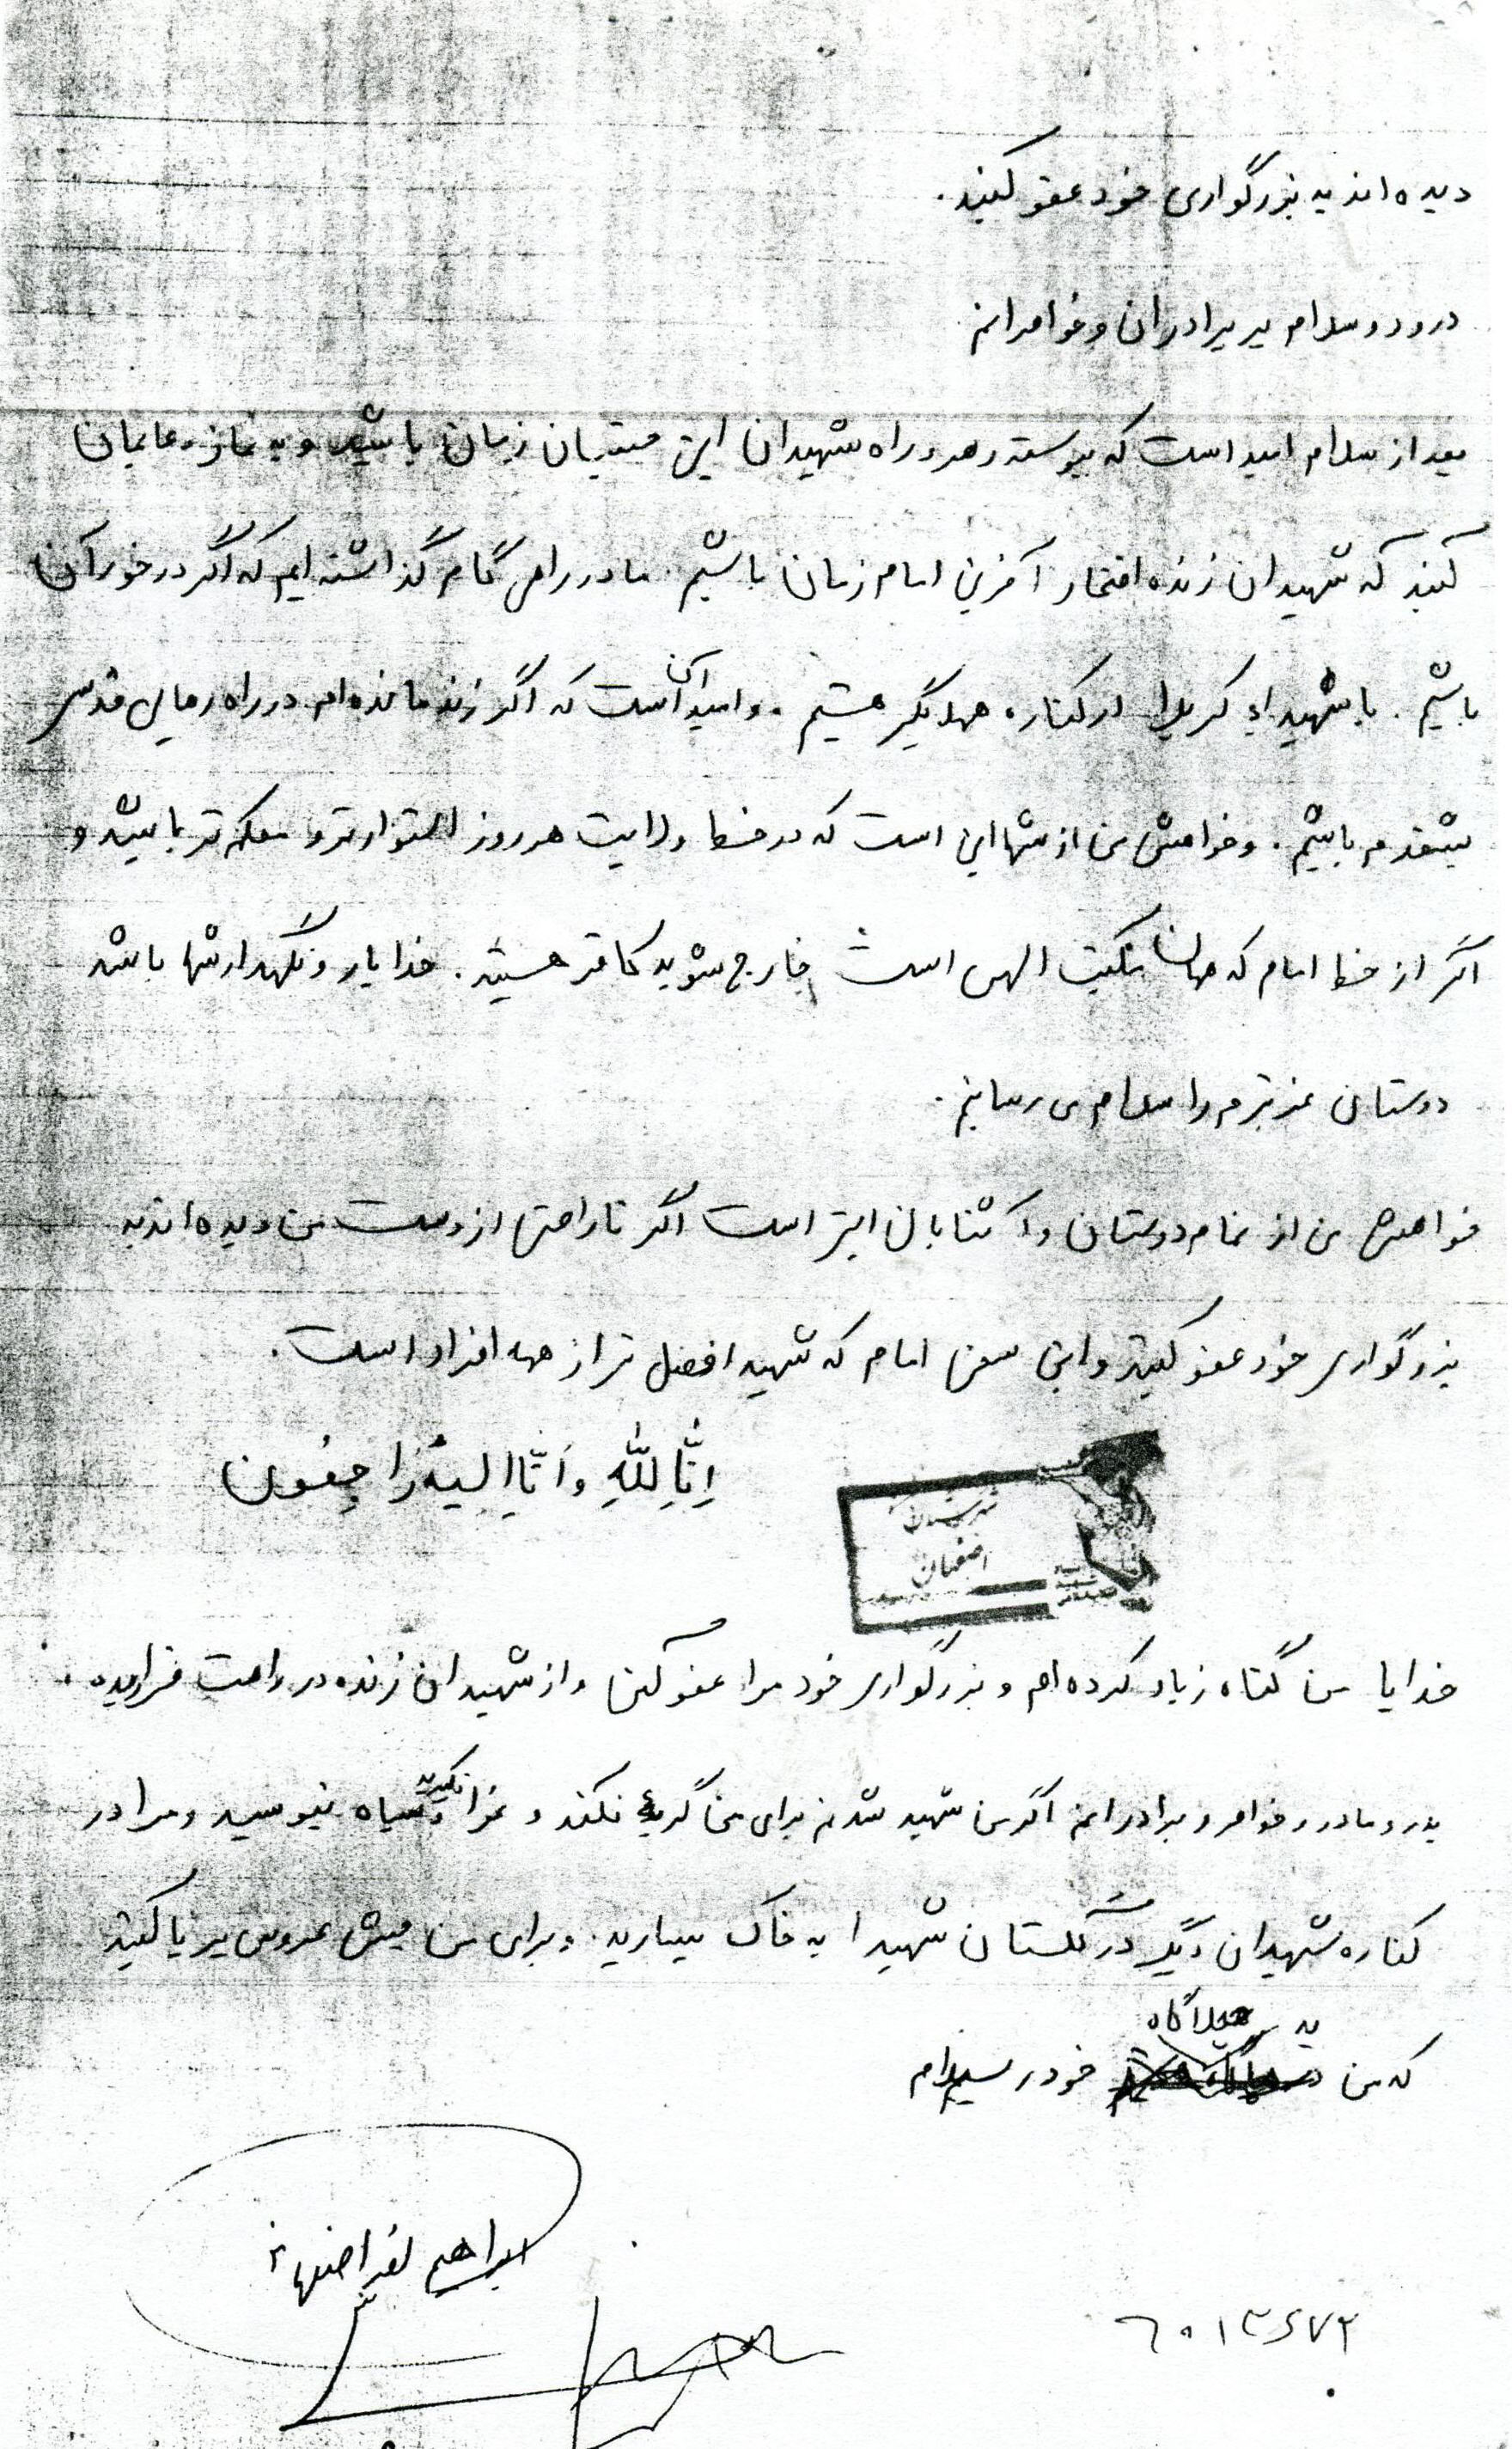 دیده اند به بزرگواری خود عفو کنید.
درود و سلام بر برادران و خواهرانم
بعد از سلام امید است که پیوسته رهرو راه شهیدان این حسینیان زمان باشید و به نماز دعایمان
کنید که شهیدان زنده افتخار آفرین امام زمان باشیم. ما در راهی گام گذاشته ایم که اگر در خور آن
باشیم. با شهداء کربلا در کناره همدیگر هستیم. و امید آن است که اگر زنده مانده ام در راه رهایی قدس
پیشقدم باشیم. و خواهش من از شما این است که در خط ولایت هر روز استوارتر و محکم تر باشید و
اگر از خط امام که همان مکتب الهی است خارج شوید کافر هستید. خدا یار و نگهدار شما باشد
دوستان عزیزم را سلام می رسانم.
خواهش من از تمام دوستان و آشنایان این است اگر ناراحتی از دست من دیده اند به
بزرگواری خود عفو کنید و این سخن امام که شهید افضل تر از همه افراد است.
اِنّا لِلّهِ وَ اَنّا اِلیهِ راجِعُون
شهرستان
اصفهان
خدایا من گناه زیاد کرده ام و بزرگواری خود مرا عفو کن و از شهیدان زنده در راهت قرار بده.
پدر و مادر و خواهر و برادرانم اگر من شهید شدم برای من گریه نکند و عزا نگیرید و سیاه نپوشید و مرا در
کناره شهیدان دیگر در گلستان شهدا به خاک بسپارید. و برای من جشن عروسی برپا کنید
که من به خود رسیده ام
ابراهیم اصفهانی
٦٠١٣٤٧٢